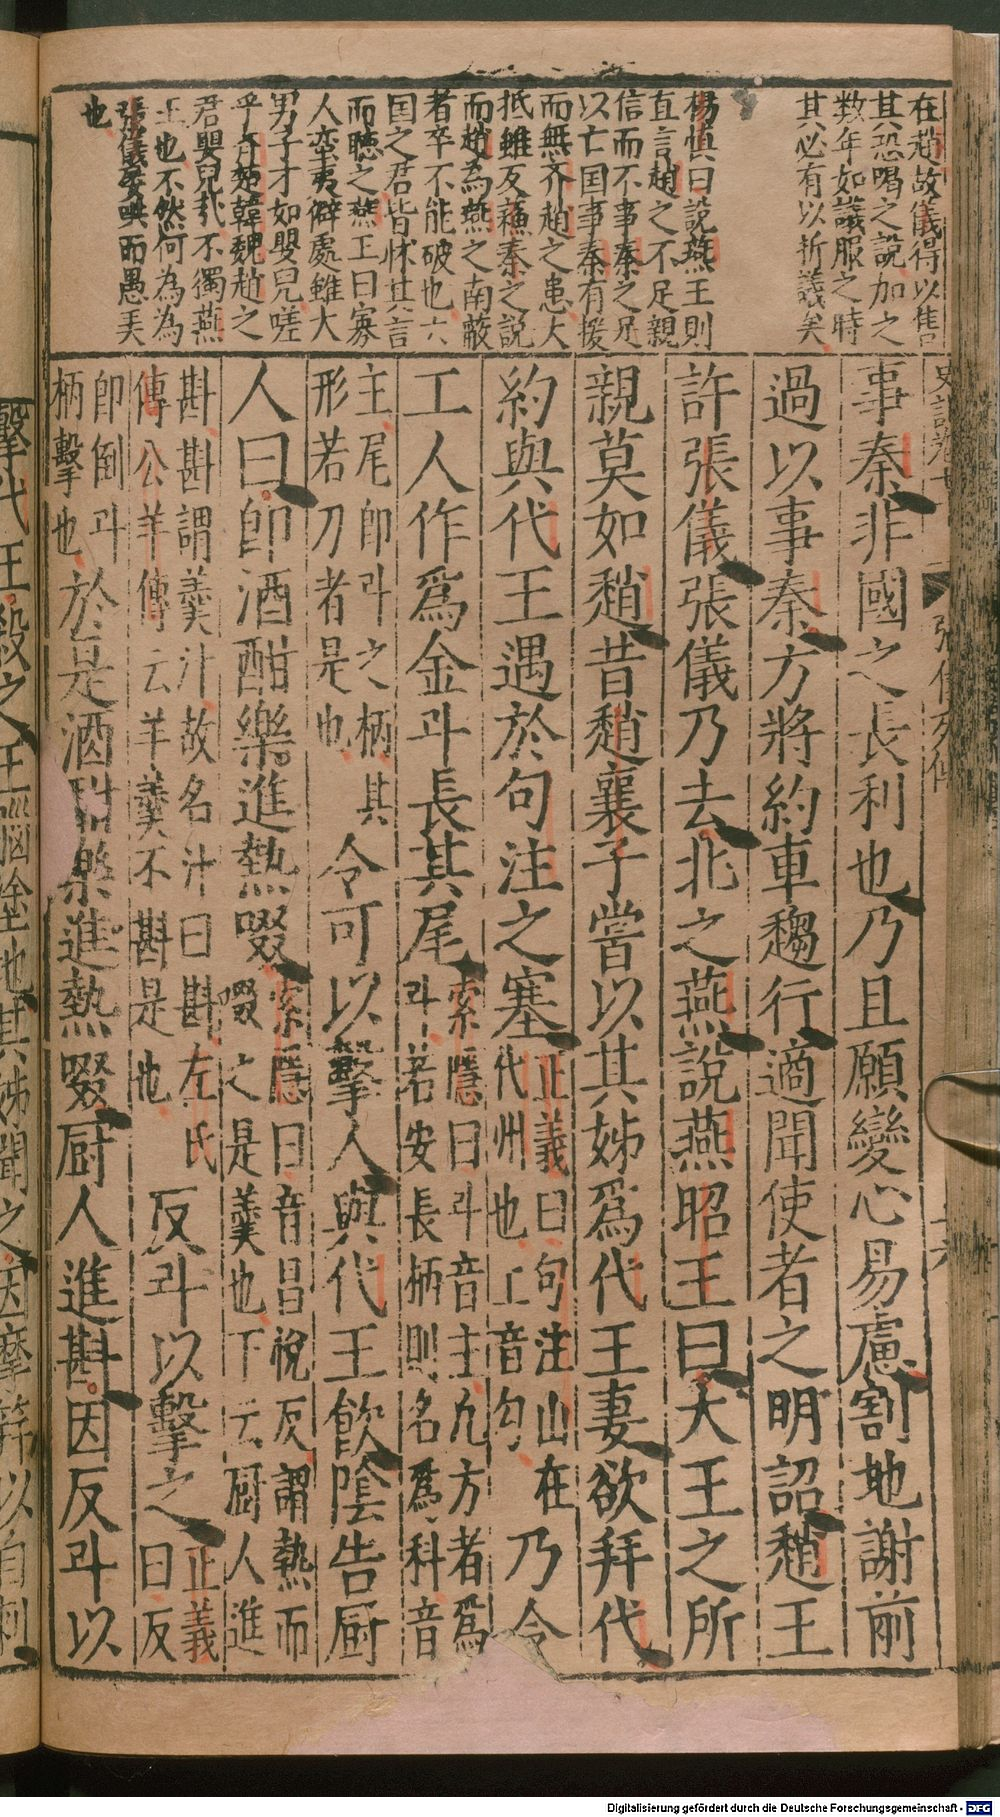 在趙故儀得以售
其恐喝之說加之
数年如議服之時
其必有以折議矣
楊慎曰說燕王則
直言趙之不足親
信而不事秦之足
以亡国事秦有援
而無齐趙之患大
抵雖反蘓秦之說
而趙為燕之南蔽
者卒不能破也六
国之君皆怵其言
而聴之燕王曰寡
人蛮夷僻處雖大
男子才如嬰兒嗟
乎齐楚韓魏趙之
君嬰兒㦲不獨燕
王也不然何為為
張儀愛哄而愚𢦤
也
張儀列傳
事秦非國之長利也乃且願變心易慮割地謝前
過以事秦方將約車趨行適聞使者之明詔趙王
許張儀張儀乃去北之燕說燕昭王曰大王之所
親莫如趙昔趙襄子嘗以其姊爲代王妻欲并代
約與代王遇於句注之塞
正義曰句注山在
代州也上音勾
乃令
工人作爲金斗長其尾
索隱曰斗音主凢方者爲
斗若安長柄則名爲科音
主尾即斗之柄其
形若刀者是也
令可以擊人與代王飮陰告厨
人曰即酒酣樂進熱啜
索隱曰音昌悅反謂熱而
啜之是羹也下云厨人進
斟斟謂羹汁故名汁曰斟左氏
傳公羊傳云羊羹不斟是也
反斗以擊之
正義
曰反
即倒斗
柄擊也
於是酒酣樂進熱啜厨人進斟因反斗以
擊代王殺之王腦塗地其姊聞之因摩笄以自刺
Digitalisierung gefördert durch die Deutsche Forschungsgemeinschaft - DFG